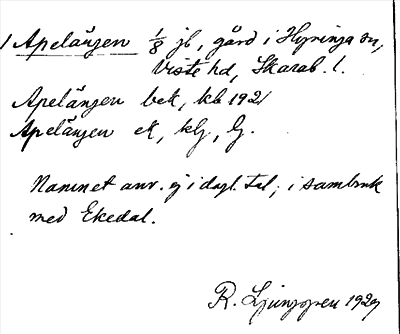 / Apelängen 1/8 jb, gård i Hyringa sn,
Viste hd, Skarab. l.
Apelängen bek, kb 1921
Apelängen ek, klj, lj.
Namnet anv. ej i dagl. tal; i sambruk
med Ekedal.
R. Ljunggren 1929